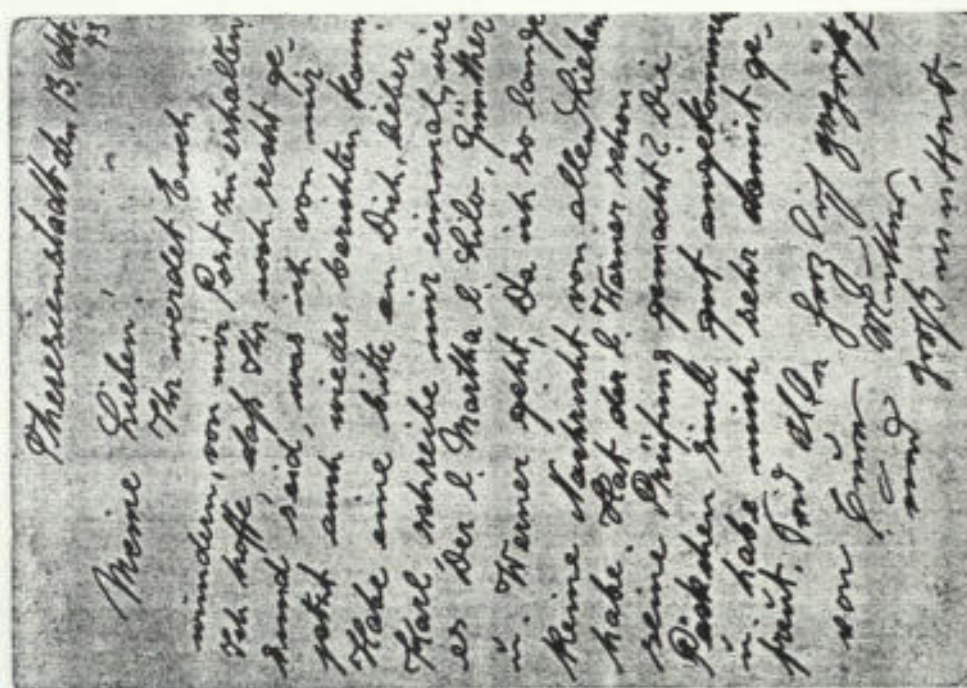 Theresienstadt den 13. Okt.
43
Meine Lieben,
Ihr werdet Euch
wundern, von mir Post zu erhalten
Ich hoffe, daß Ihr noch recht ge-
sund seid, was ich von mir
jetzt auch wieder berichten kann
Habe eine bitte an Dich, lieber
Karl, schreibe mir einmal, wie
es Der l. Martha l. Lilo, Günther
u. Werner geht, Da ich so lange
keine Nachricht von allen Lieben
habe. Hat der l. Werner schon
seine Prüfung gemacht? Die
Päckchen sind gut angekommen
u. habe mich sehr damit ge-
freut. Seid alle herzlich gegrüßt
von Eurer Mutter
und Großmutter.